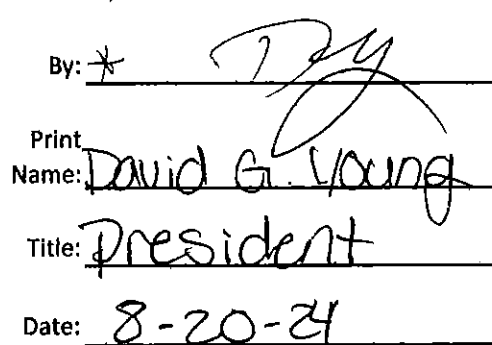 By: *
Print
Name: David G. Young
Title: President
Date: 8-20-24